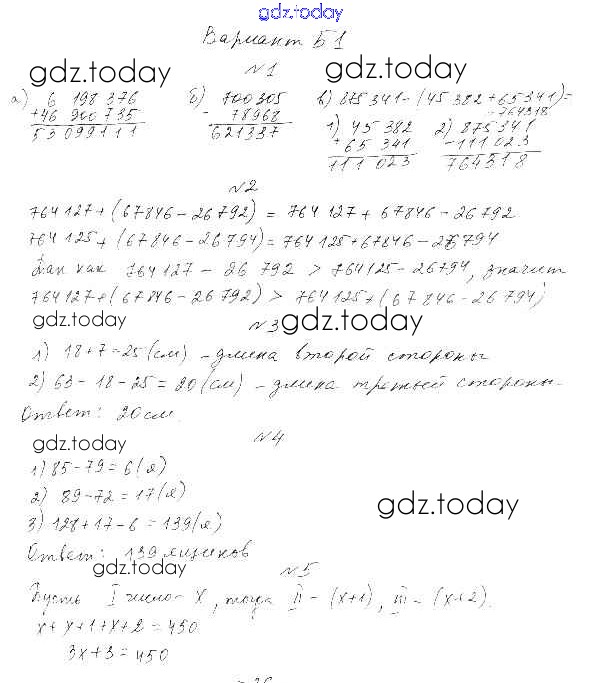 gdz.today
Вариант Б1
№1
gdz.today gdz.today
а) 6 198 376 б) 700305 в) 875 341 - (45 382 + 65 341) =
+46 900 735 - 78968 = 764318
53 099 111 621337 1) 45 382 2) 875341
+ 65 341 - 111 023
111 023 764318
№2
764 127 + (67846 - 26 792) = 764 127 + 67846 - 26792
764 125 + (67846 - 26794) = 764125 + 67846 - 26794
Так как 764 127 - 26 792 > 764125 - 26794, значит
764 127 + (67846 - 26792) > 764 125 + (67846 - 26794)
gdz.today №3 gdz.today
1) 18 + 7 = 25 (см) - длина второй стороны
2) 63 - 18 - 25 = 20 (см) - длина третьей стороны.
Ответ: 20 см.
№4
gdz.today
1) 85 - 79 = 6 (я)
2) 89 - 72 = 17 (я)
gdz.today
3) 128 + 17 - 6 = 139 (я)
Ответ: 139 ящиков
gdz.today №5
Пусть I число - x, тогда II - (x+1), III - (x+2).
x + x + 1 + x + 2 = 450
3x + 3 = 450